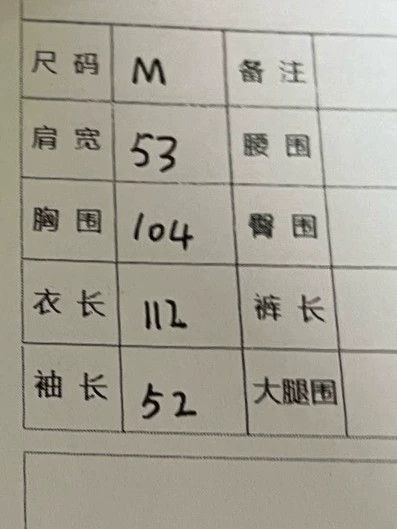 尺码 M 备注
肩宽 53 腰围
胸围 104 臀围
衣长 112 裤长
袖长 52 大腿围